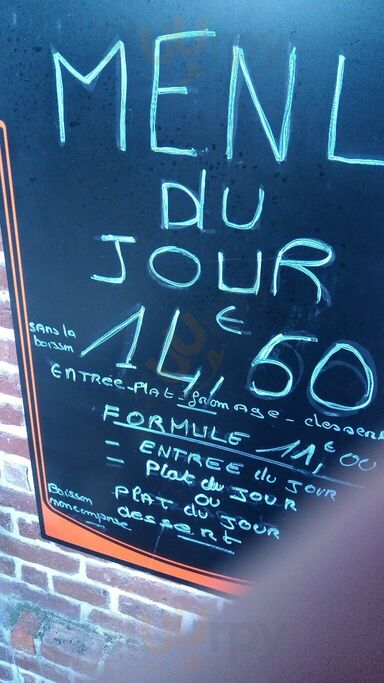 MENU
DU
JOUR
sans la
boisson
14,€50
ENTRÉE-Plat-fromage-dessert
FORMULE 11,€00
- ENTREE du JOUR
- Plat du JOUR
OU
PLAT du JOUR
dessert
Boisson
non comprise